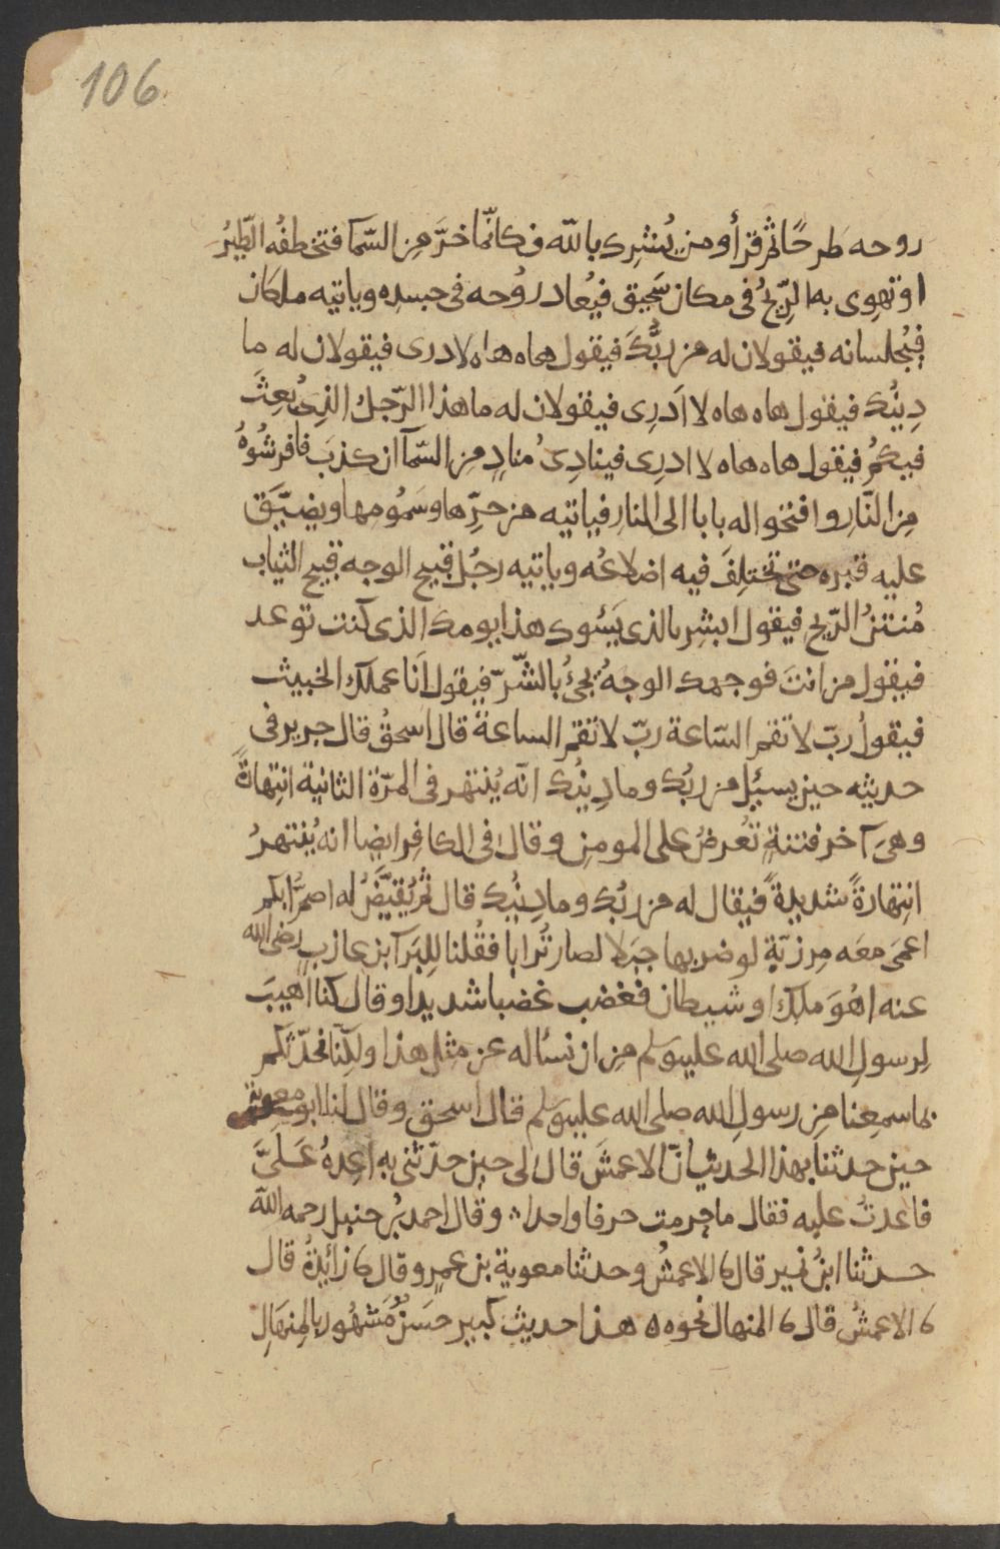 106
روحه طرحًا ثم قرأ ومن يُشرِك بالله فكانّما خرَّ مِن السّمآ فتخطفُه الطّيرُ
او تهوِى به الرّيحُ فى مكان سَحِيق فيُعاد روُحه فى جسده وياتيه ملكان
فيُجلسانه فيقولان له من ربُّكَ فيقول هاه هاه لا درى فيقولان له ما
دِينُك فيقول هاه هاه لا اَدرِى فيقولان له ما هذا الرّجل الذِى بُعِثَ
فيكمُ فيقول هاه هاه لا ادرِى فينادِى مُنادٍ مِن السّمآ ان كذبَ فافرشُوهُ
مِن النّارِ وافتحوا له بابا الى النار فياتيه من حرِّها وسَمُومها ويضيّق
عليه قبره حتى تختلِفَ فيه اضلاعُه وياتيه رجُل قبيح الوجه قبيح الثياب
مُنتنُ الرّيح فيقول ابشِر بالذى يَسُوك هذا يومك الذى كنت توعد
فيقول من انتَ فوجهك الوجهُ يجئُ بالشّرّ فيقول اَنا عملك الخبيث
فيقولُ ربّ لا تقم السّاعة ربّ لا تقم الساعة قال اسحقُ قال جرير فى
حديثه حين يسيل من ربُّك وما دِينُك انّه يُنتهر فى المرّة الثانية انتِهارةً
وهىَ آخر فتنةٍ تُعرضُ على المومِنِ وقال فى الكافِر ايضا انه يُنتهرُ
انتِهارةً شديدةً فيقال له من ربُّك وما دِينُك قال ثم يُقيَّضُ له اصمُّ ابكم
اعمَى معَه مِرزبّةٍ لو ضربها جبَلا لصار تُرابا فقُلنا لِلبَرآ بن عازبٍ رضى الله
عنه اهُوَ ملك او شيطان فغضب غضبا شديدا وقال كنا اهيبَ
لِرسولِ الله صلى الله عليه وسلم مِن ان نساله عن مثل هذا ولكنّا نحدّثكم
بما سمِعنا مِن رسولِ الله صلى الله عليه وسلم قال اسحق وقال لنا ابو معوية
حين حدثنا بهذا الحديث انّ الاعمشَ قال لى حين حدّثنى به اعِدهُ عَلىَّ
فاعدتُ عليه فقال ما خرمت حرفا واحدا وقال احمد بْن حنبل رحمه الله
حدثنا ابنُ نمير قال ثنا الاعمشُ وحدثنا معوية بن عمرٍو قال ثنا زائِدةُ قال
ثنا الاعمشُ قال ثنا المنهال نحوه ه هذا حديث كبير حسَنٌ مَشهُور بالمنِهَالِ